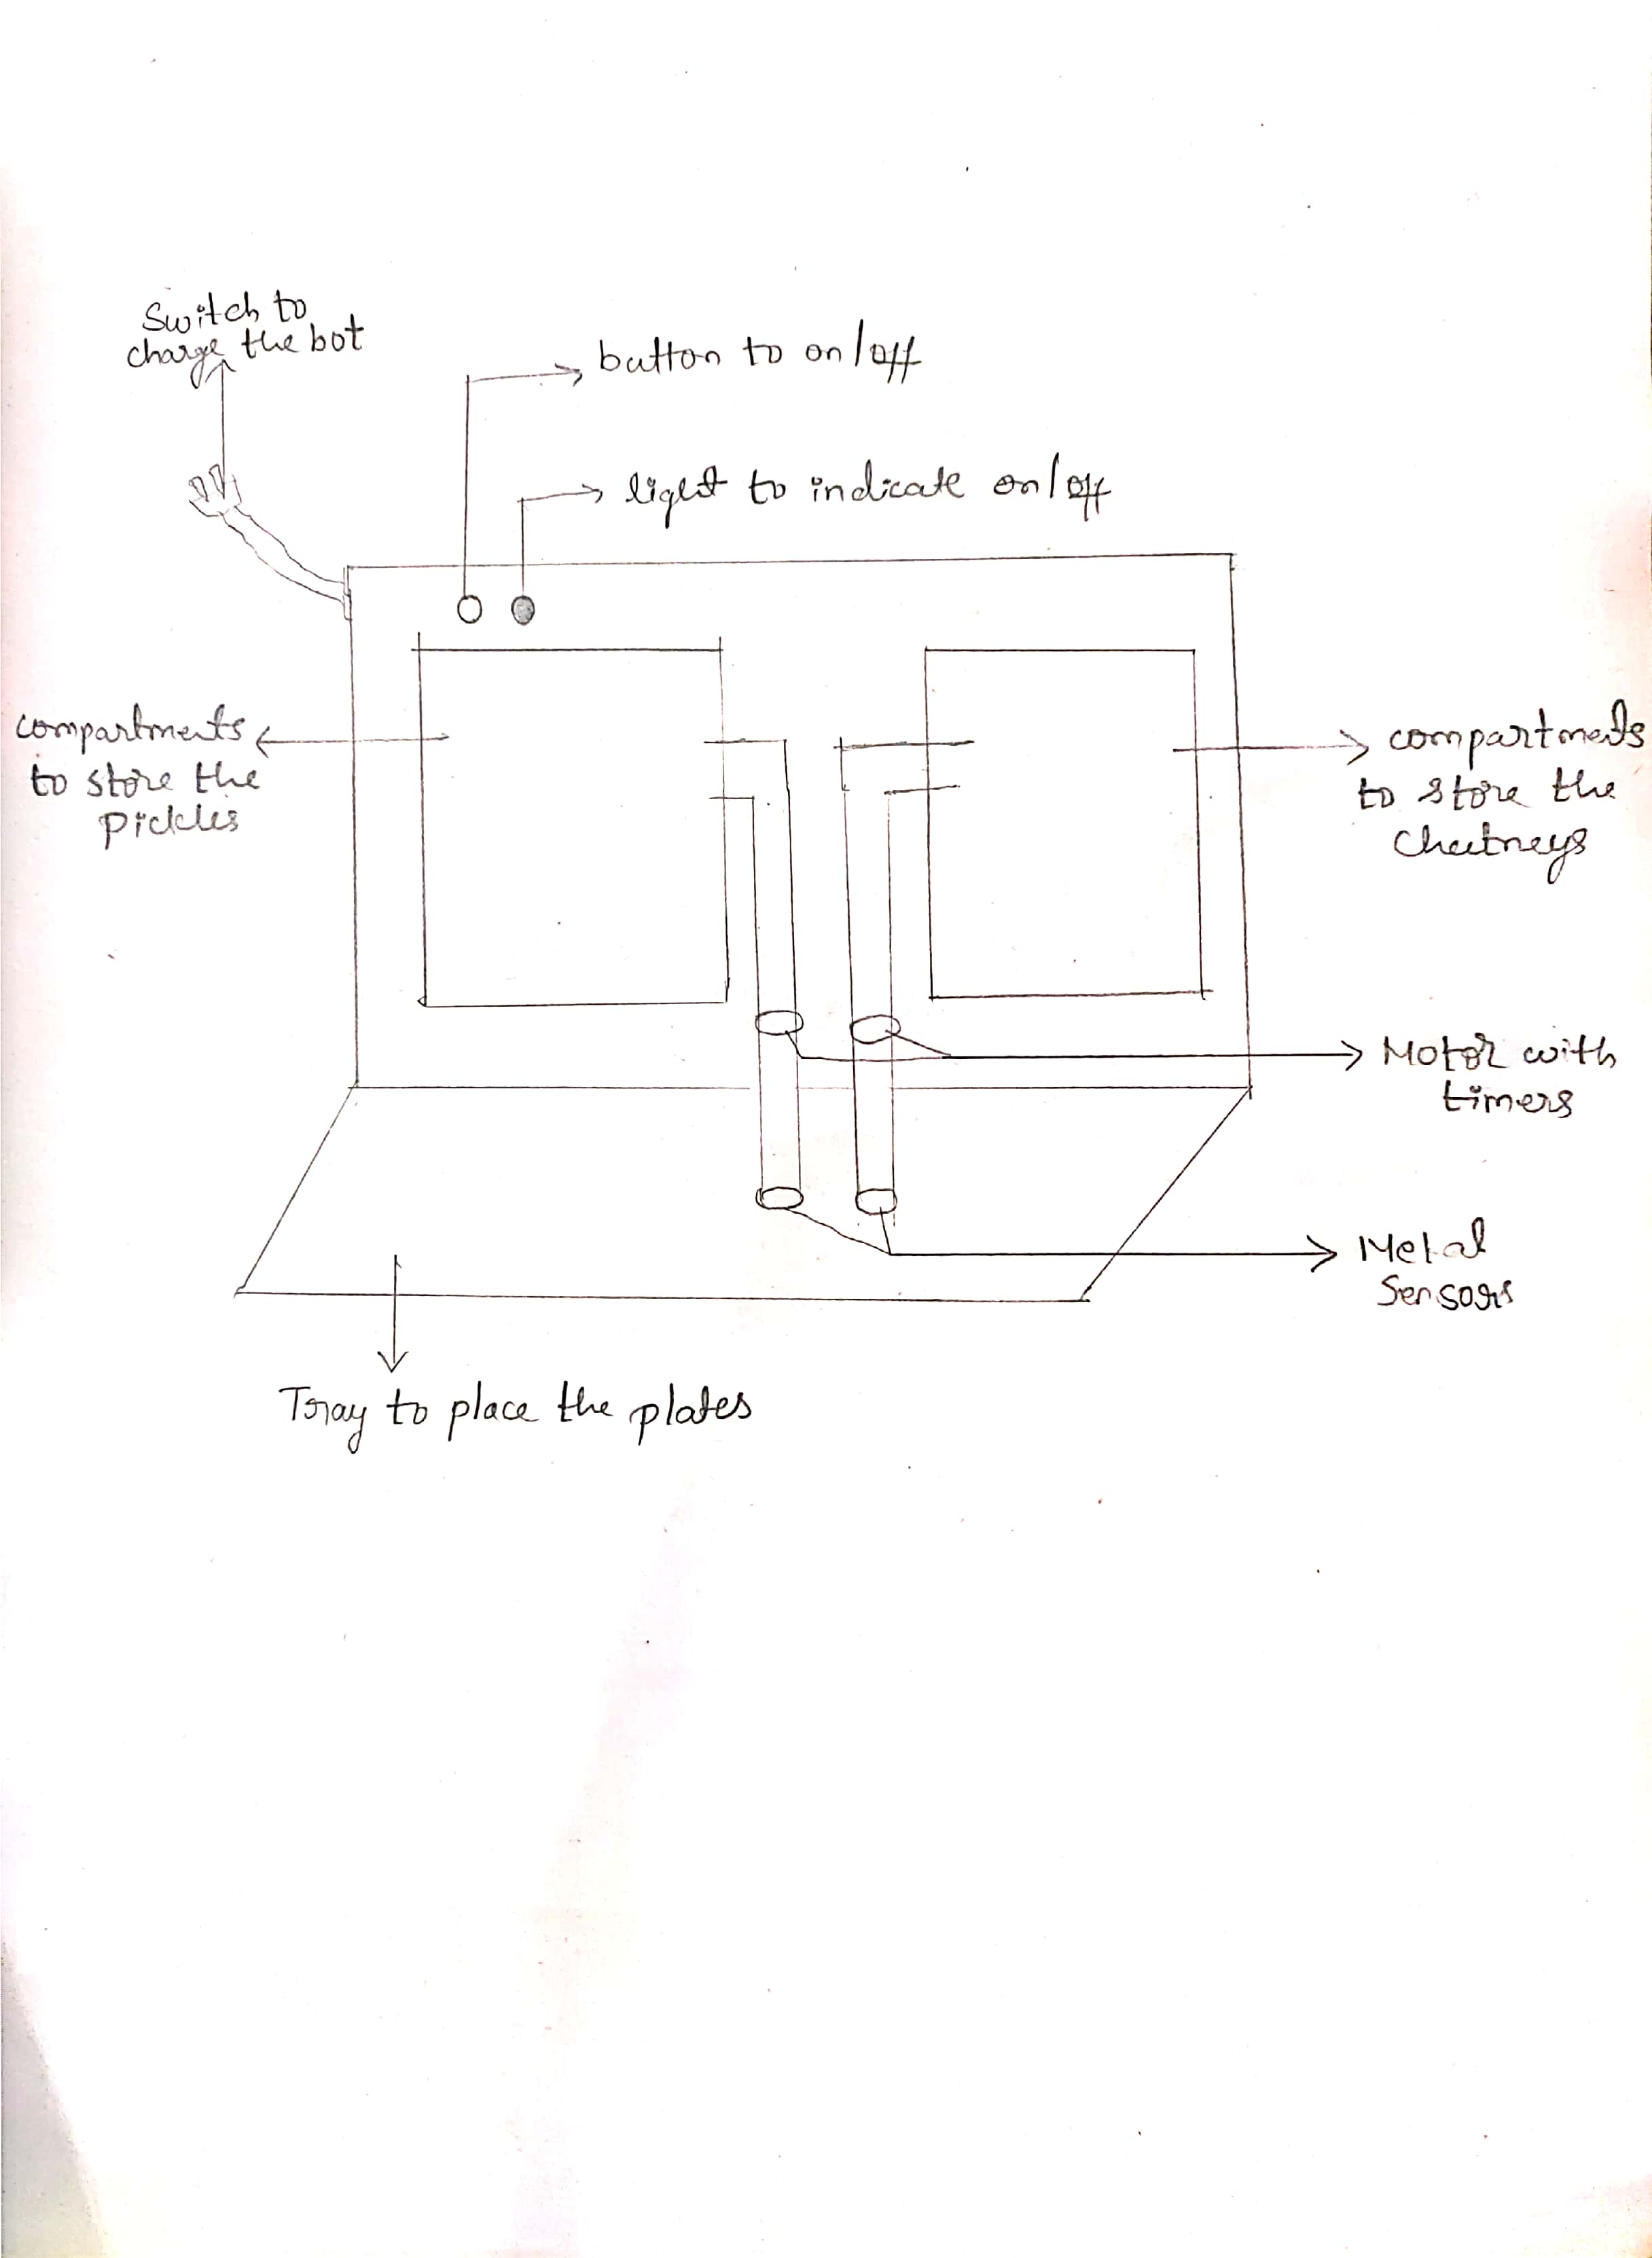 Switch to
charge the bot
button to on/off
light to indicate on/off
compartments
to store the
pickles
compartments
to store the
Chutneys
Motor with
timers
Metal
Sensors
Tray to place the plates